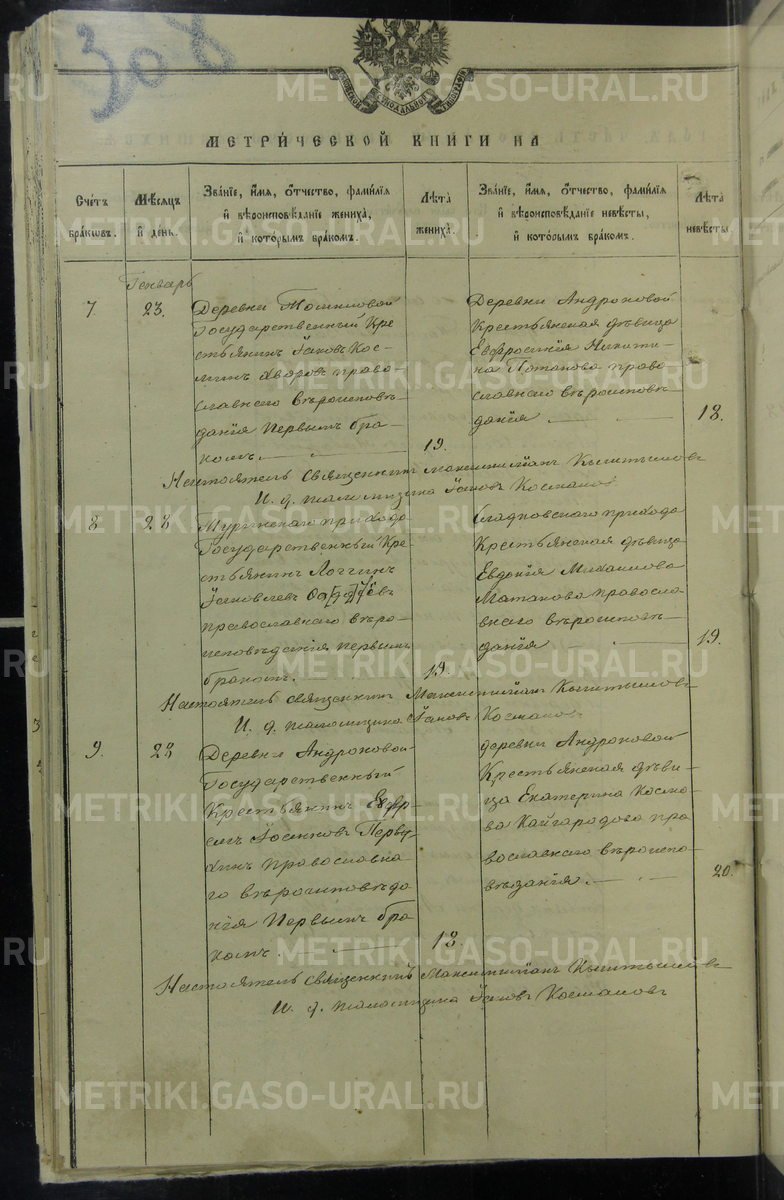 308
МЕТРИ́ЧЕСКОЙ КНИГИ НА
Счетъ браковъ.
Мѣсяцъ и день.
Званіе, имя, отчество, фамилія и вѣроисповѣданіе жениха, и которымъ бракомъ.
Лѣта жениха.
Званіе, имя, отчество, фамилія и вѣроисповѣданіе невѣсты, и которымъ бракомъ.
Лѣта невѣсты.
Генварь
7
23.
Деревни
Государственный Кре
стьянинъ Іаковъ Кос
минъ право
славнаго вѣроисповѣ
данія первымъ бра
комъ.
19.
Деревни Андроновой
Крестьянская дѣвица
Евфросинія Никити
на Потапова право
славнаго вѣроисповѣ
данія
18.
Настоятель Священникъ Максимиліанъ
И. д. псаломщика Іаковъ
8
28
Туринскаго прихода
Государственный Кре
стьянинъ Логгинъ
Іаковлевъ
православнаго вѣро
исповѣданія первымъ
бракомъ.
19.
Сладковскаго прихода
Крестьянская дѣвица
Евдокія Михаилова
православ
наго вѣроисповѣ
данія
19.
Настоятель Священникъ Максимиліанъ
И. д. псаломщика Іаковъ
9.
28
Деревни Андроновой
Государственный
Крестьянинъ Ефр
емъ Перву
хинъ православна
го вѣроисповѣда
нія первымъ бра
комъ.
18
деревни Андроновой
Крестьянская дѣви
ца Екатерина Космо
ва Кайгородова пра
вославнаго вѣроиспо
вѣданія.
20.
Настоятель Священникъ Максимиліанъ
И. д. псаломщика Іаковъ
METRIKI.GASO-URAL.RU